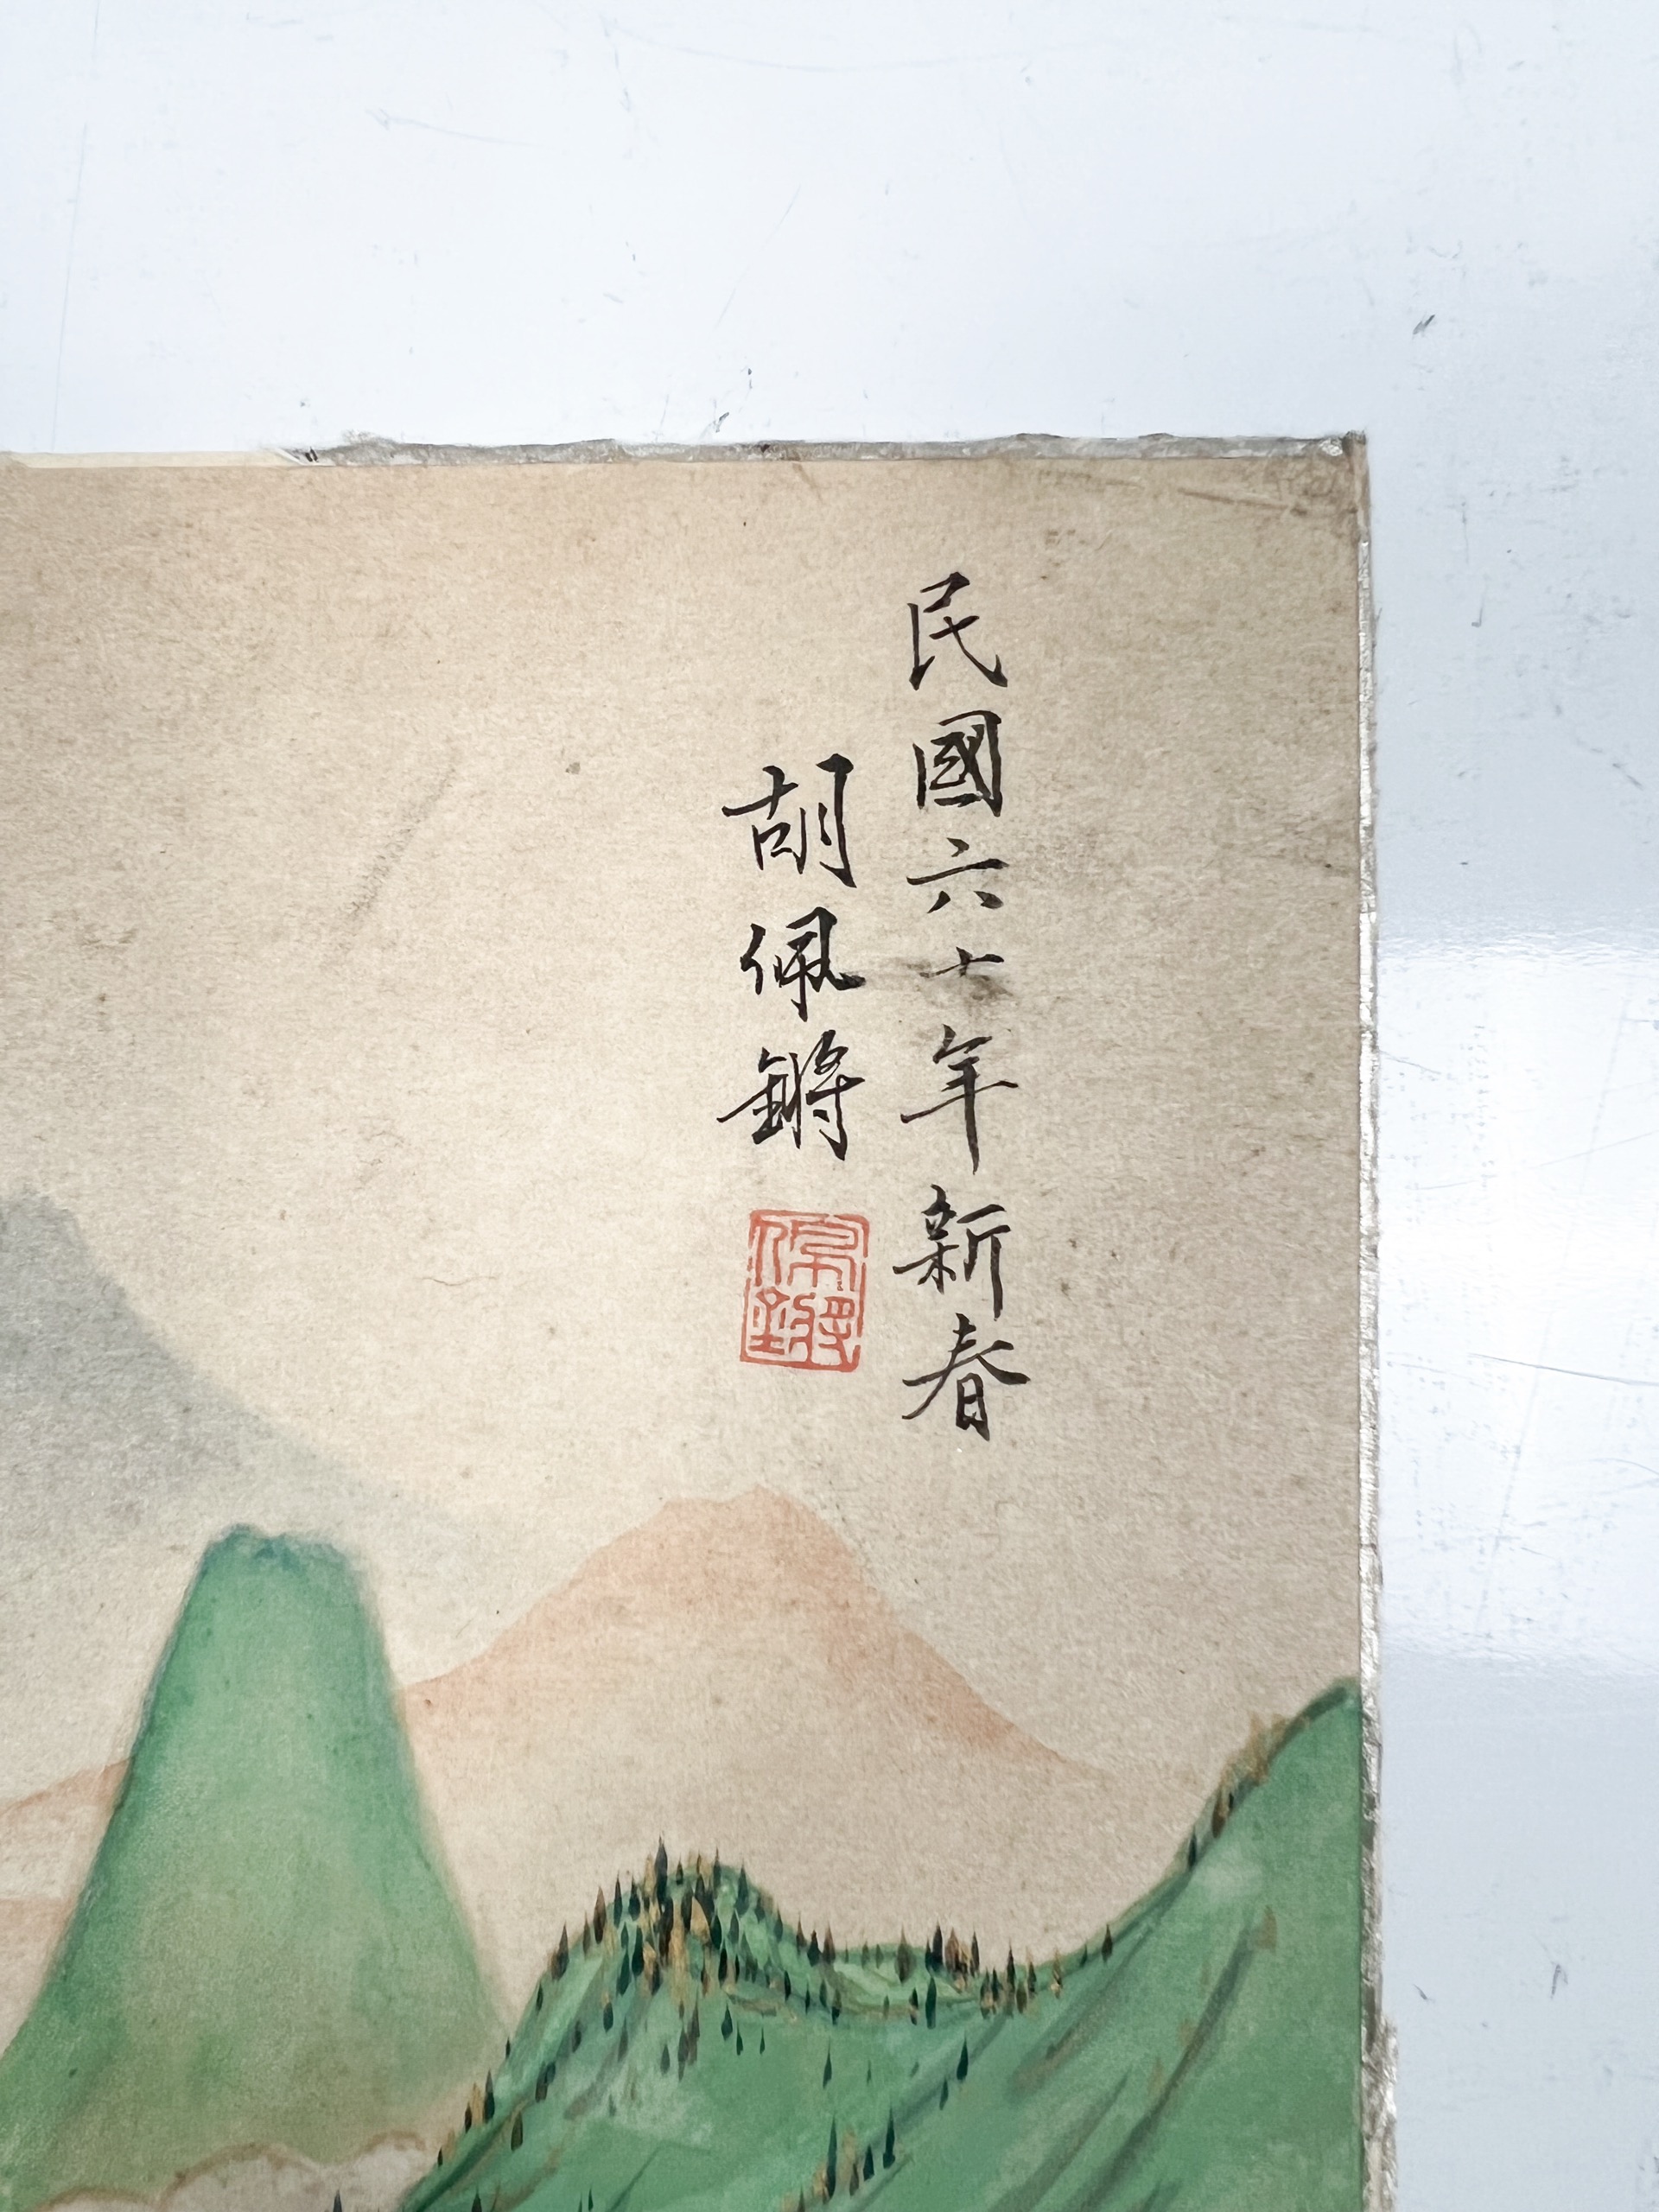 民國六七年新春
胡佩鏘
佩鏘